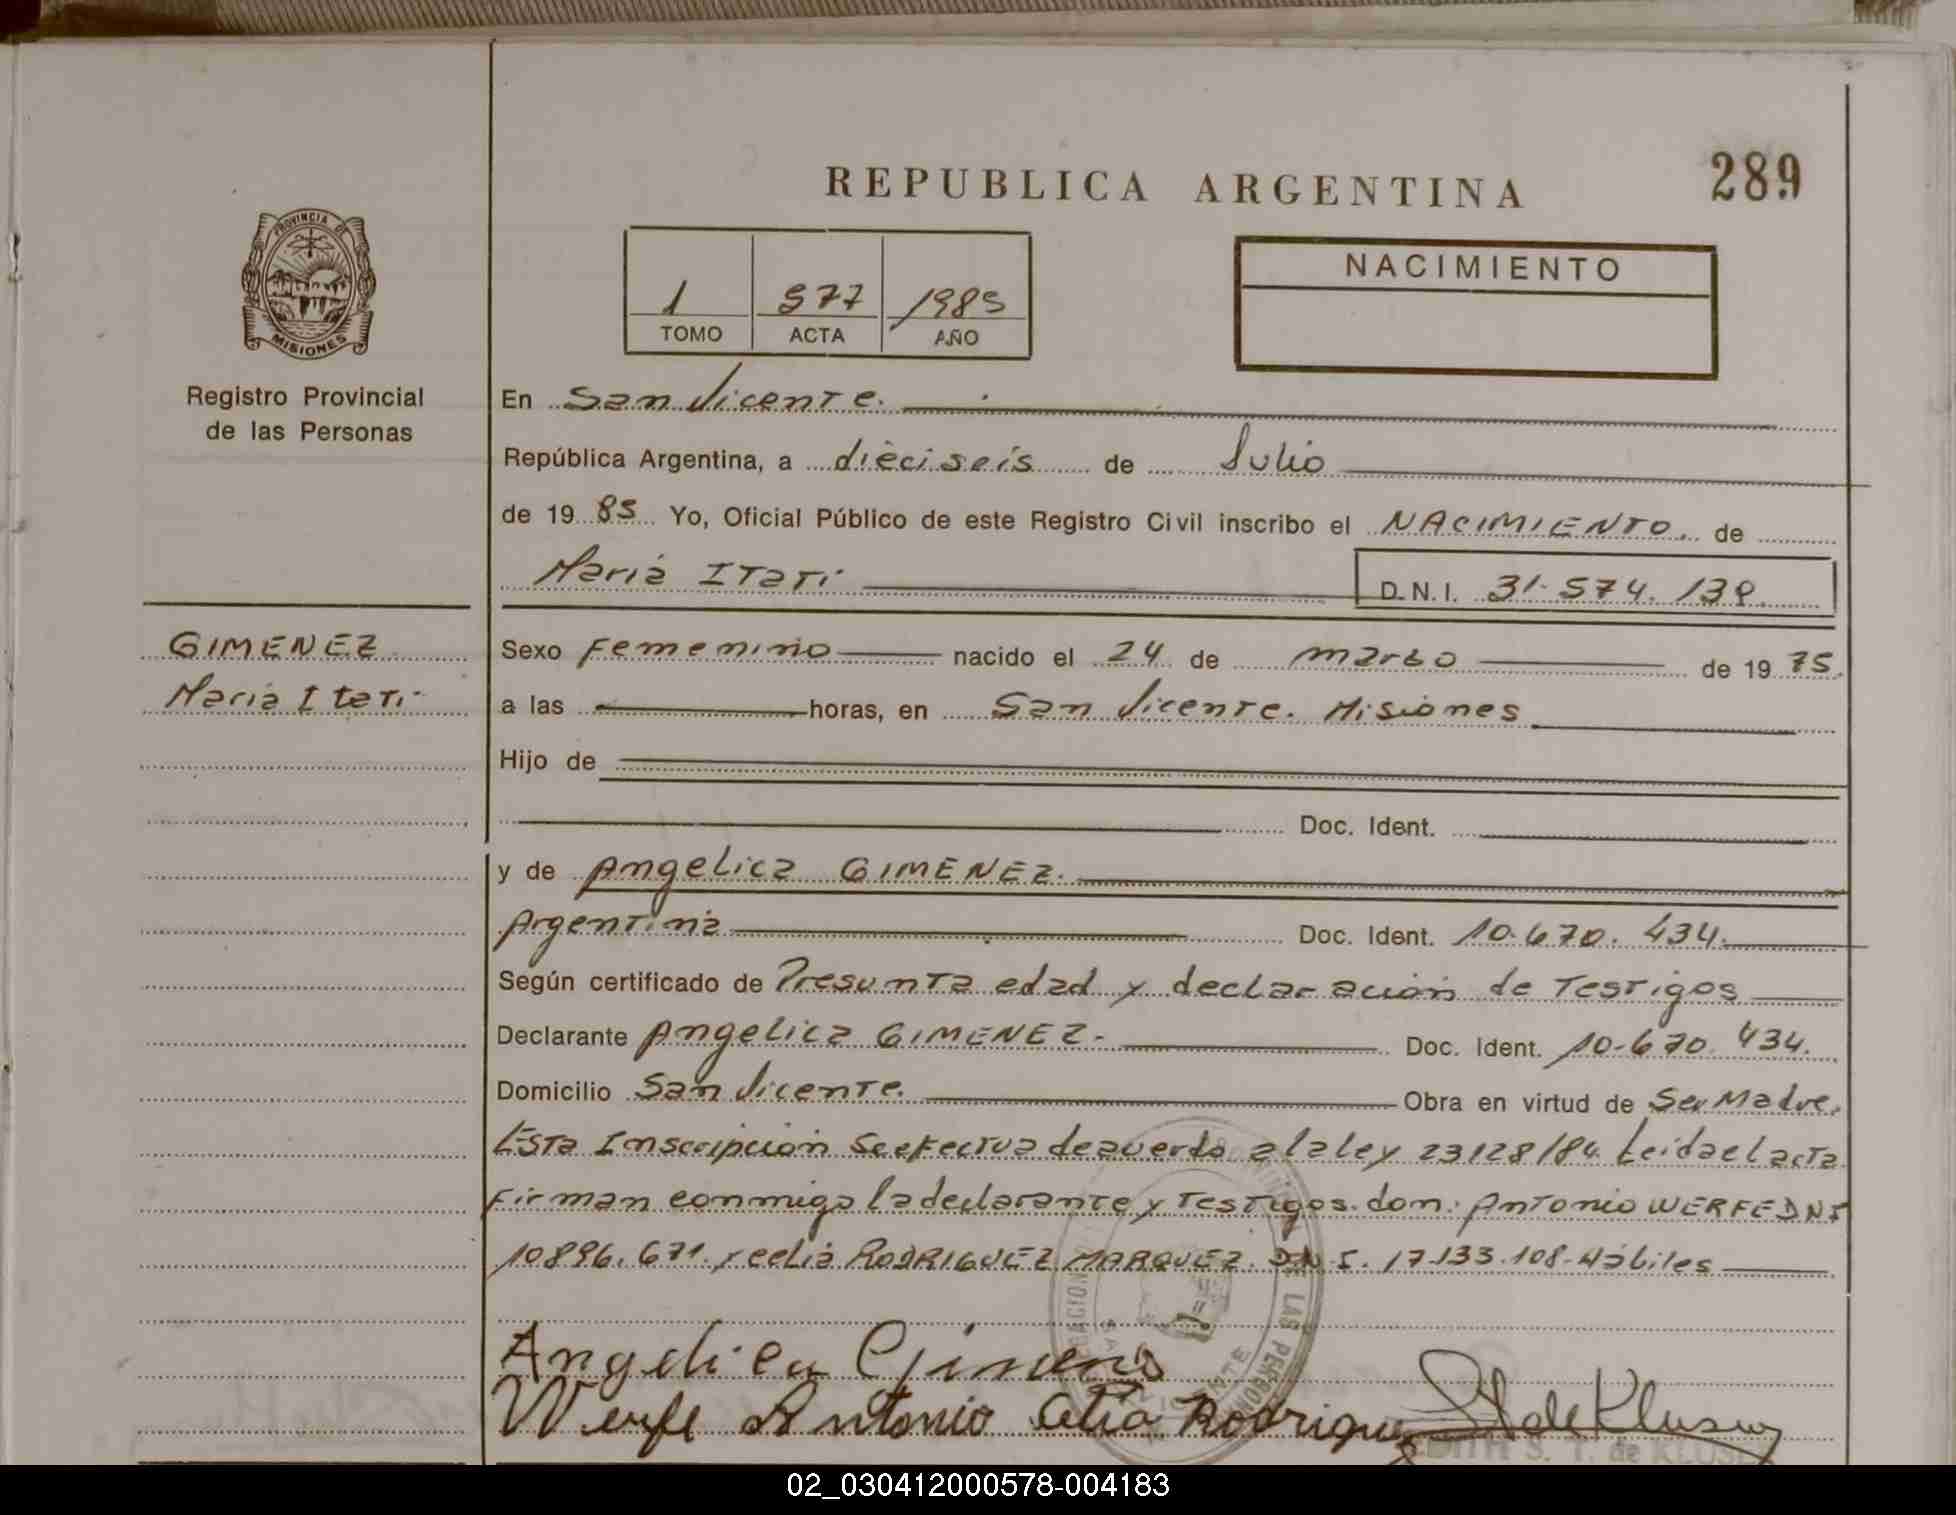 REPUBLICA ARGENTINA
289
PROVINCIA DE
MISIONES
Registro Provincial
de las Personas
1 577 1985
TOMO ACTA AÑO
NACIMIENTO
En San Vicente.
República Argentina, a dieciseis de Julio
de 19 85 Yo, Oficial Público de este Registro Civil inscribo el NACIMIENTO. de
Maria Itati
D.N.I. 31.574.139.
GIMENEZ
Maria Itati
Sexo Femenino nacido el 24 de marso de 19 75
a las horas, en San Vicente. Misiones
Hijo de
Doc. Ident.
y de Angelica GIMENEZ.
Argentina Doc. Ident. 10.670.434.
Según certificado de Presunta edad y declaración de Testigos
Declarante Angelica GIMENEZ. Doc. Ident. 10.670.434.
Domicilio San Vicente. Obra en virtud de Ser Madre.
Esta Inscripción se efectua de acuerdo a la ley 23128/84. Leida el acta
Firman conmigo la declarante y Testigos. don: Antonio WERFE DNI
10896.671. y celia RODRIGUEZ MARQUEZ. DNI. 17.133.108- Hábiles
Angelica
Werfe Antonio Celia Rodriguez
S. T. de KLUSE
02_030412000578-004183